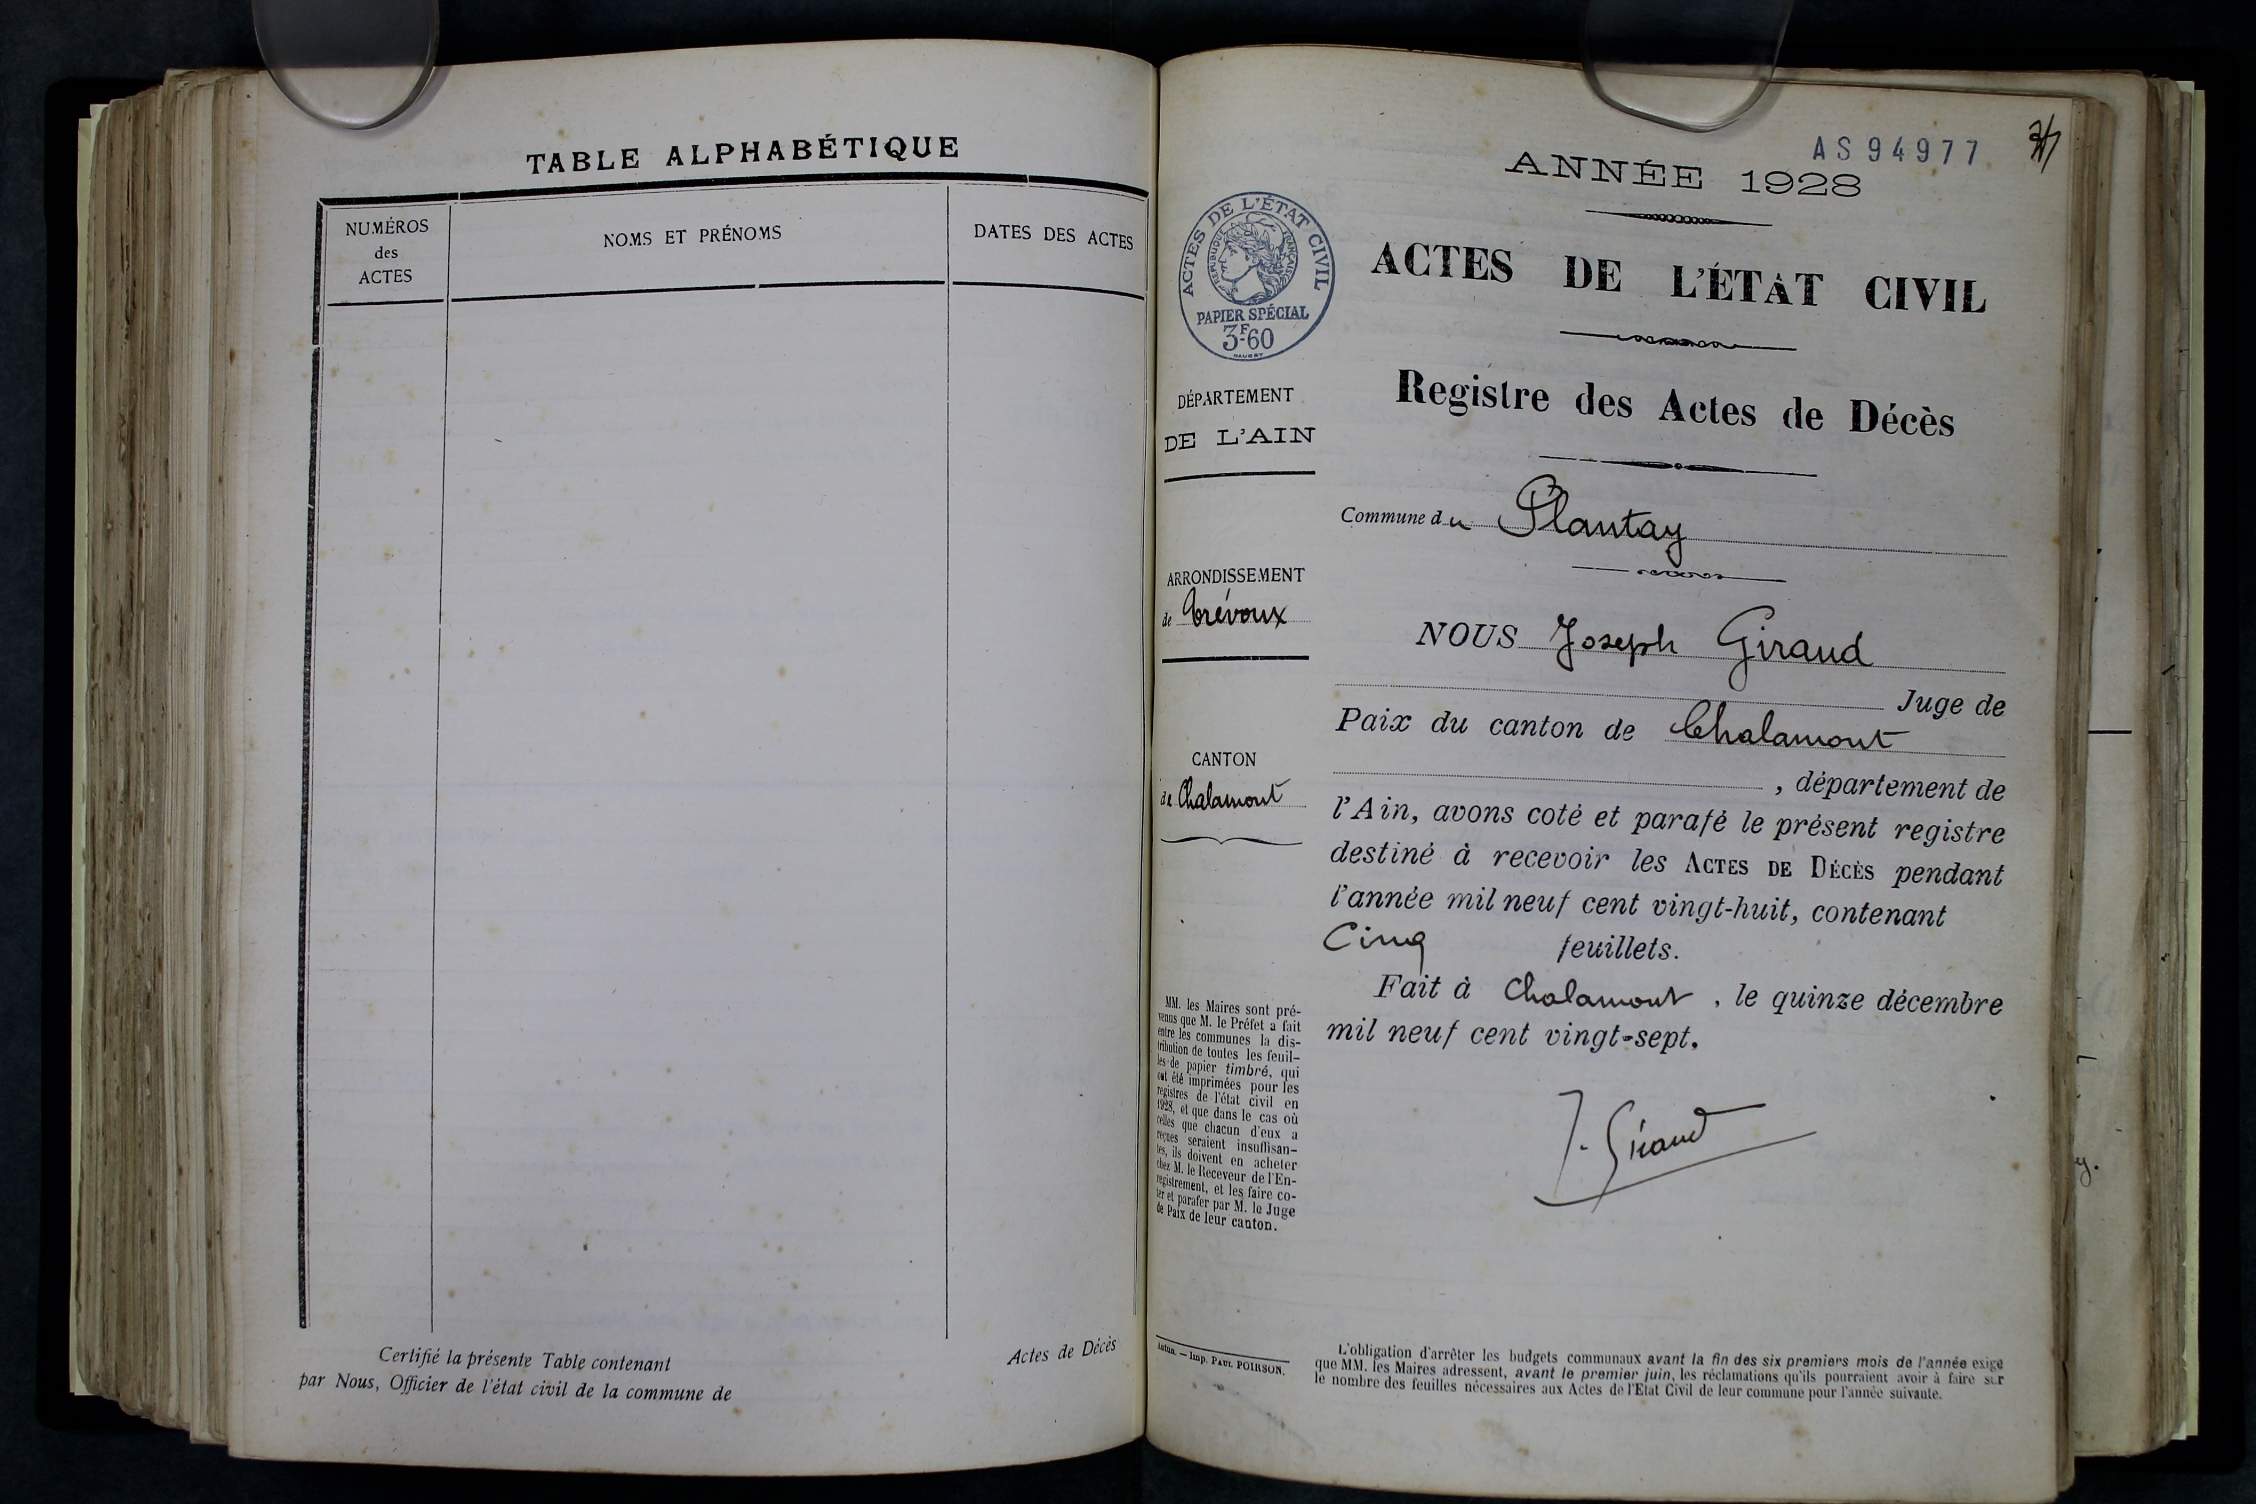 TABLE ALPHABÉTIQUE
NUMÉROS
des
ACTES
NOMS ET PRÉNOMS
DATES DES ACTES
Certifié la présente Table contenant
par Nous, Officier de l'état civil de la commune de
Actes de Décès
AS94977
ANNÉE 1928
ACTES DE L'ÉTAT CIVIL
RÉPUBLIQUE FRANÇAISE
PAPIER SPÉCIAL
3F60
ACTES DE L'ÉTAT CIVIL
Registre des Actes de Décès
DÉPARTEMENT
DE L'AIN
Commune du Plantay
ARRONDISSEMENT
de Trévoux
NOUS Joseph Giraud
Juge de
Paix du canton de Chalamont
, département de
CANTON
de Chalamont
l'Ain, avons coté et parafé le présent registre
destiné à recevoir les ACTES DE DÉCÈS pendant
l'année mil neuf cent vingt-huit, contenant
Cinq feuillets.
Fait à Chalamont, le quinze décembre
mil neuf cent vingt-sept.
J. Giraud
MM. les Maires sont pré-
venus que M. le Préfet a fait
entre les communes la dis-
tribution de toutes les feuil-
les de papier timbré, qui
ont été imprimées pour les
registres de l'état civil en
1928, et que dans le cas où
celles que chacun d'eux a
reçues seraient insuffisan-
tes, ils doivent en acheter
chez M. le Receveur de l'En-
registrement, et les faire co-
ter et parafer par M. le Juge
de Paix de leur canton.
Autun. — Imp. PAUL POIRSON.
L'obligation d'arrêter les budgets communaux avant la fin des six premiers mois de l'année exige
que MM. les Maires adressent, avant le premier juin, les réclamations qu'ils pourraient avoir à faire sur
le nombre des feuilles nécessaires aux Actes de l'Etat Civil de leur commune pour l'année suivante.